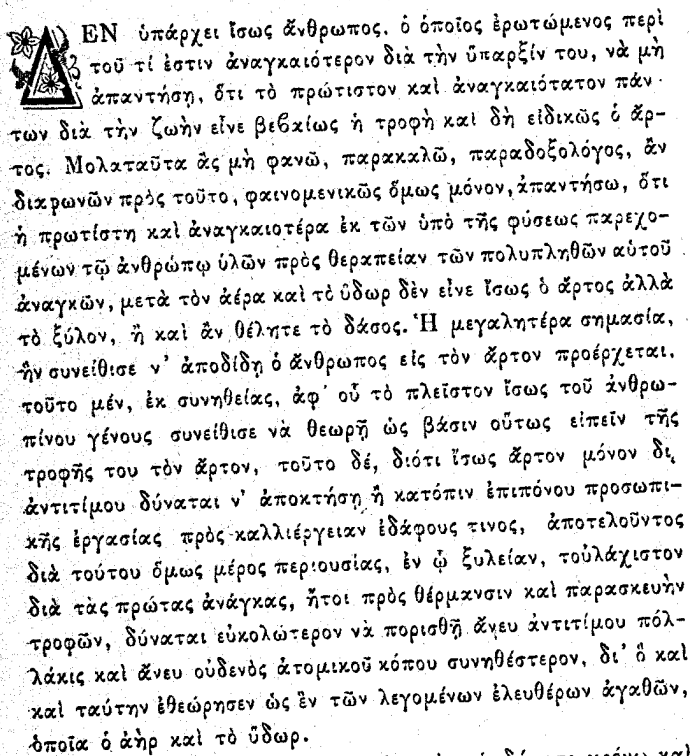 ΔΕΝ ὑπάρχει ἴσως ἄνθρωπος, ὁ ὁποῖος ἐρωτώμενος περὶ
τοῦ τί ἐστιν ἀναγκαιότερον διὰ τὴν ὕπαρξίν του, νὰ μὴ
ἀπαντήσῃ, ὅτι τὸ πρώτιστον καὶ ἀναγκαιότατον πάν-
των διὰ τὴν ζωὴν εἶνε βεβαίως ἡ τροφὴ καὶ δὴ εἰδικῶς ὁ ἄρ-
τος. Μολαταῦτα ἂς μὴ φανῶ, παρακαλῶ, παραδοξολόγος, ἂν
διαφωνῶν πρὸς τοῦτο, φαινομενικῶς ὅμως μόνον, ἀπαντήσω, ὅτι
ἡ πρωτίστη καὶ ἀναγκαιοτέρα ἐκ τῶν ὑπὸ τῆς φύσεως παρεχο-
μένων τῷ ἀνθρώπῳ ὑλῶν πρὸς θεραπείαν τῶν πολυπληθῶν αὐτοῦ
ἀναγκῶν, μετὰ τὸν ἀέρα καὶ τὸ ὕδωρ δὲν εἶνε ἴσως ὁ ἄρτος ἀλλὰ
τὸ ξύλον, ἢ καὶ ἂν θέλητε τὸ δάσος. Ἡ μεγαλητέρα σημασία,
ἣν συνείθισε ν' ἀποδίδῃ ὁ ἄνθρωπος εἰς τὸν ἄρτον προέρχεται,
τοῦτο μέν, ἐκ συνηθείας, ἀφ' οὗ τὸ πλεῖστον ἴσως τοῦ ἀνθρω-
πίνου γένους συνείθισε νὰ θεωρῇ ὡς βάσιν οὕτως εἰπεῖν τῆς
τροφῆς του τὸν ἄρτον, τοῦτο δέ, διότι ἴσως ἄρτον μόνον δι'
ἀντιτίμου δύναται ν' ἀποκτήσῃ ἢ κατόπιν ἐπιπόνου προσωπι-
κῆς ἐργασίας πρὸς καλλιέργειαν ἐδάφους τινος, ἀποτελοῦντος
διὰ τούτου ὅμως μέρος περιουσίας, ἐν ᾧ ξυλείαν, τοὐλάχιστον
διὰ τὰς πρώτας ἀνάγκας, ἤτοι πρὸς θέρμανσιν καὶ παρασκευὴν
τροφῶν, δύναται εὐκολώτερον νὰ πορισθῇ ἄνευ ἀντιτίμου πολ-
λάκις καὶ ἄνευ οὐδενὸς ἀτομικοῦ κόπου συνηθέστερον, δι' ὃ καὶ
καὶ ταύτην ἐθεώρησεν ὡς ἓν τῶν λεγομένων ἐλευθέρων ἀγαθῶν,
ὁποῖα ὁ ἀὴρ καὶ τὸ ὕδωρ.